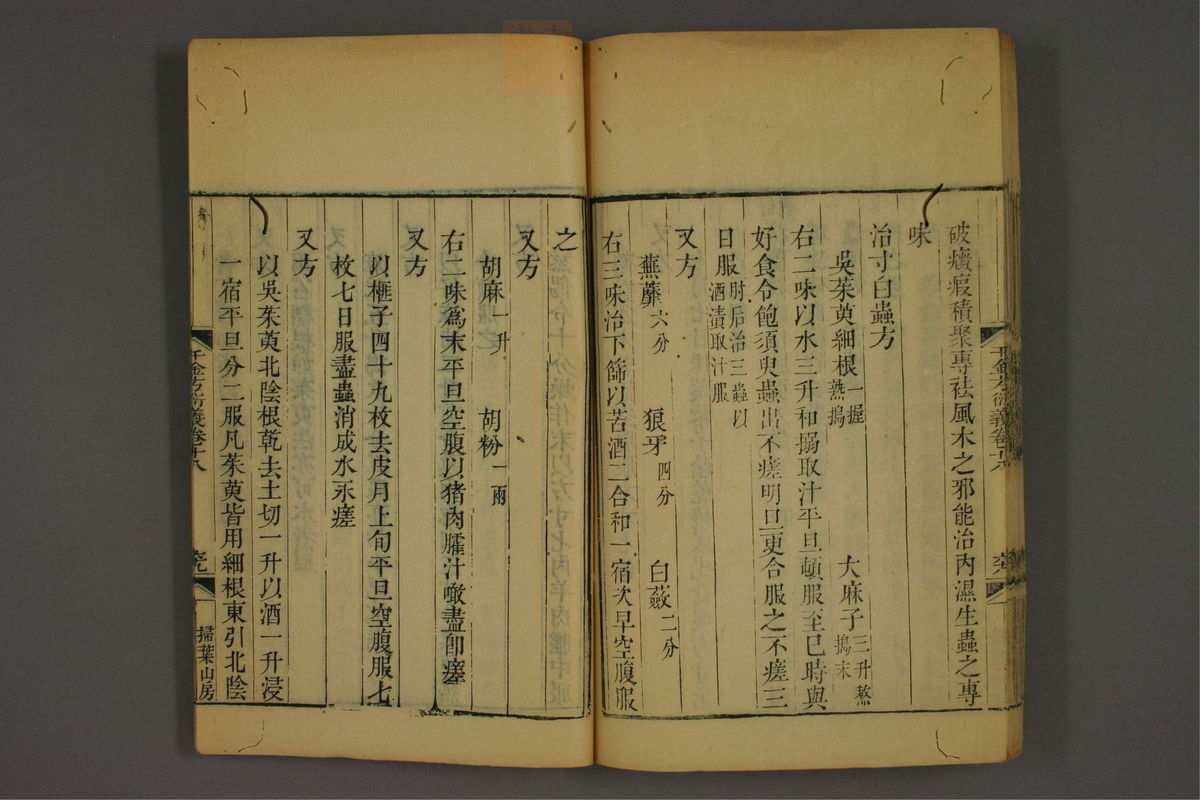 破癥瘕積聚專祛風木之邪能治內濕生蟲之專
味
治寸白蟲方
吳茱萸細根一握熟搗 大麻子三升熬搗末
右二味以水三升和搦取汁平旦頓服至巳時與
好食令飽須臾蟲出不瘥明旦更合服之不瘥三
日服肘后治三蟲以酒漬取汁服
又方
蕪蘼六分 狼牙四分 白蘞二分
右三味治下篩以苦酒二合和一宿次早空腹服
千金方衍義卷十八
之
又方
胡麻一升 胡粉一兩
右二味爲末平旦空腹以猪肉臛汁噉盡卽瘥
又方
以榧子四十九枚去皮月上旬平旦空腹服七
枚七日服盡蟲消成水永瘥
又方
以吳茱萸北陰根乾去土切一升以酒一升浸
一宿平旦分二服凡茱萸皆用細根東引北陰
千金方衍義卷十八
掃葉山房